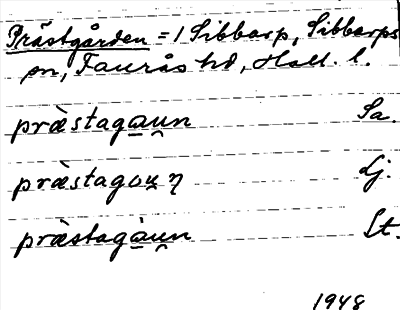 Prästgården = 1 Sibbarp, Sibbarps
sn, Faurås hd, Hall. l.
præ̀stagau̯n Sa.
præ̀stagau̯ɳ Lj.
præ̀stagàu̯n St.
1948